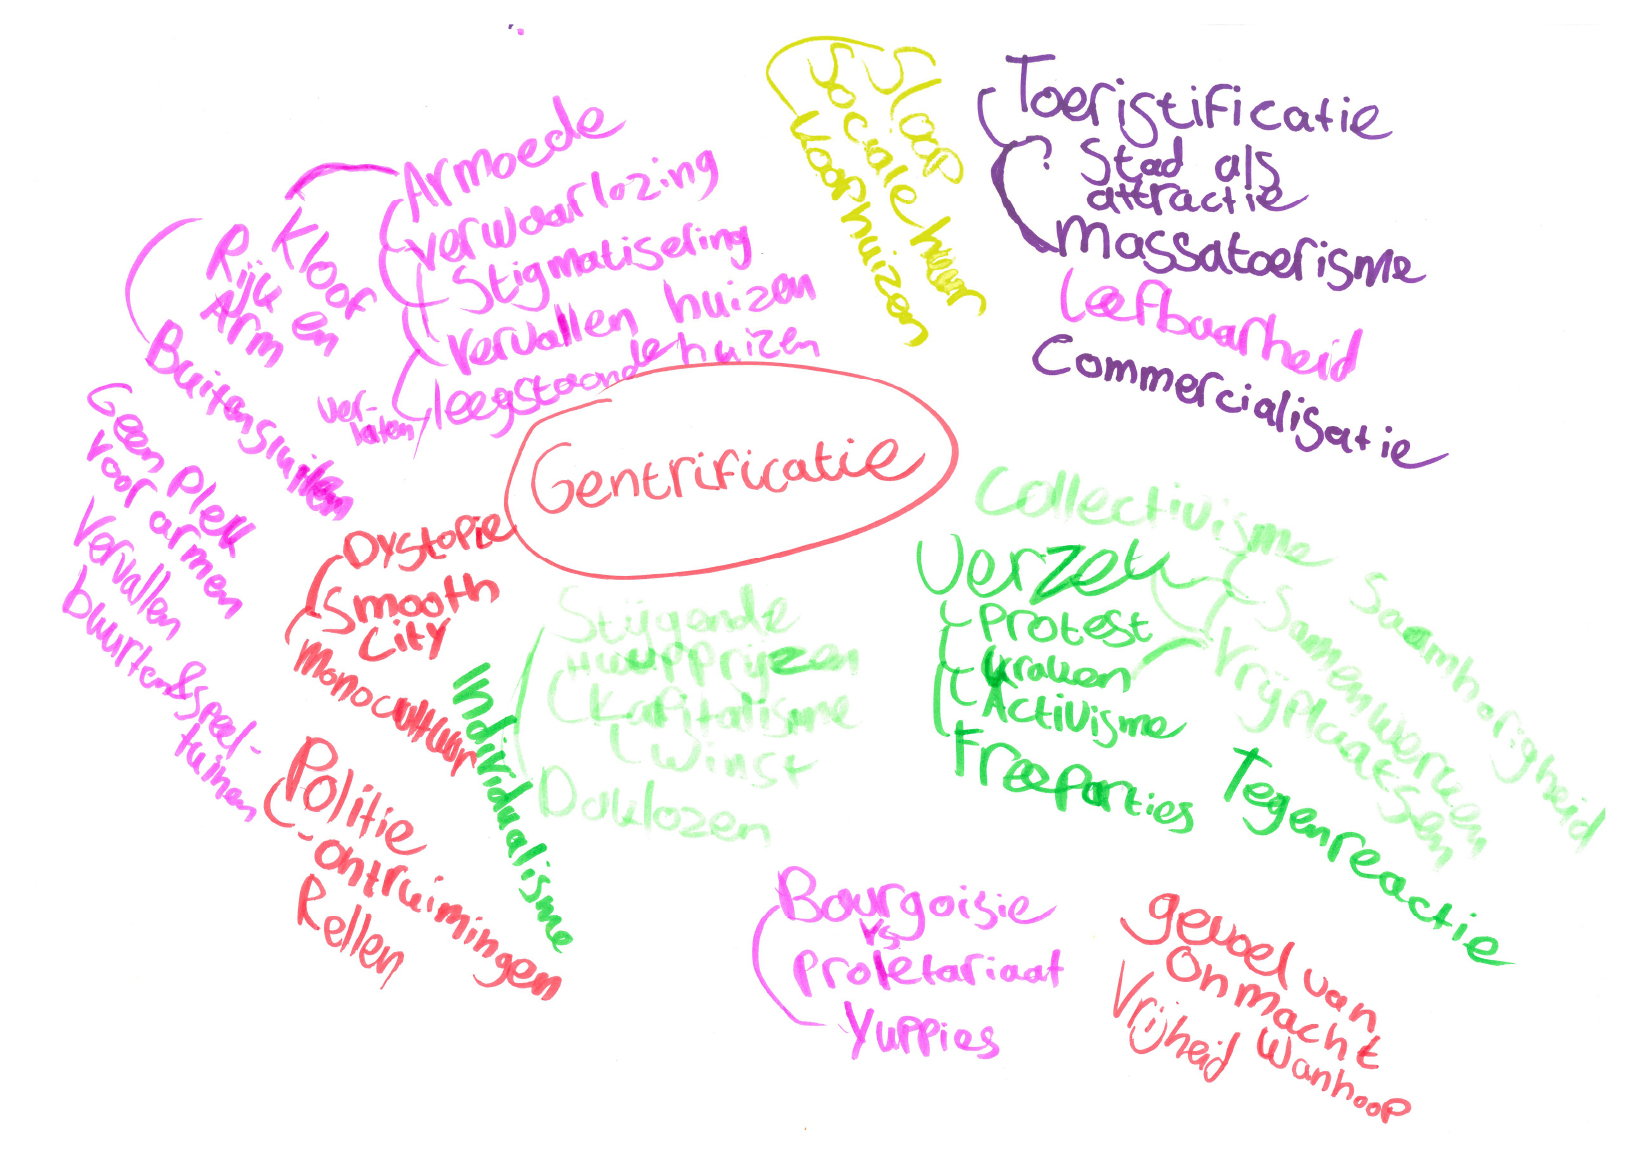 Armoede
verwaarlozing
Stigmatisering
vervallen huizen
leegstaande huizen
ver-
laten
Kloof
Rijk en
Arm
Buitensluiten
Geen plek
voor armen
Vervallen
buurten & speel-
tuinen
Sloop
Sociale huur
Koophuizen
Toeristificatie
Stad als
attractie
Massatoerisme
Leefbaarheid
Commercialisatie
Gentrificatie
Dystopie
Smooth
City
Monocultuur
Individualisme
Politie
-ontruimingen
Rellen
Stijgende
Huurprijzen
Kapitalisme
Winst
Daklozen
Collectivisme
Verzet
Protest
Kraken
Activisme
Freeparties
Samenwerken
Saamhorigheid
Vrijplaatsen
Tegenreactie
Bourgoisie
vs
Proletariaat
Yuppies
gevoel van
Onmacht
Vrijheid Wanhoop